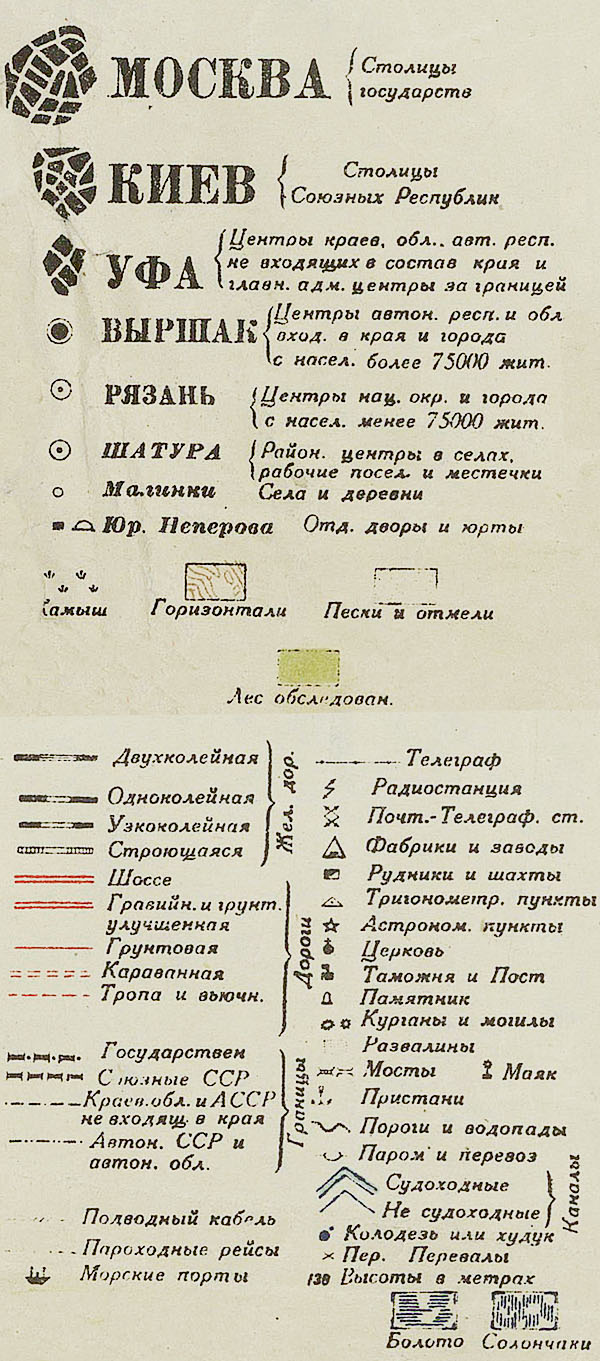 МОСКВА
Столицы
государств
КИЕВ
Столицы
Союзных Республик
УФА
Центры краев, обл.. авт. респ.
не входящих в состав края и
главн. адм. центры за границей
ВЫРШАК
Центры автон. респ. и обл
вход. в края и города
с насел. более 75000 жит.
РЯЗАНЬ
Центры нац. окр. и города
с насел. менее 75000 жит.
ШАТУРА
Район. центры в селах,
рабочие посел. и местечки
Малинки
Села и деревни
Юр. Неперова
Отд. дворы и юрты
Камыш
Горизонтали
Пески и отмели
Лес обследован.
Двухколейная
Одноколейная
Узкоколейная
Строющаяся
Жел. дор.
Шоссе
Гравийн. и грунт.
улучшенная
Грунтовая
Караванная
Тропа и вьючн.
Дороги
Государствен
Союзные ССР
Краев. обл. и АССР
не входящ. в края
Автон. ССР и
автон. обл.
Границы
Подводный кабель
Пароходные рейсы
Морские порты
Телеграф
Радиостанция
Почт.-Телеграф. ст.
Фабрики и заводы
Рудники и шахты
Тригонометр. пункты
Астроном. пункты
Церковь
Таможня и Пост
Памятник
Курганы и могилы
Развалины
Мосты
Маяк
Пристани
Пороги и водопады
Паром и перевоз
Судоходные
Не судоходные
Каналы
Колодезь или худук
Пер. Перевалы
138 Высоты в метрах
Болото
Солончаки